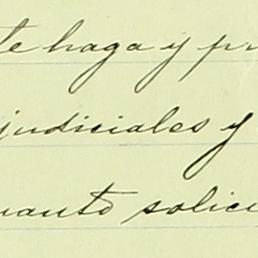 te haga y pr
judiciales y
uanto solici